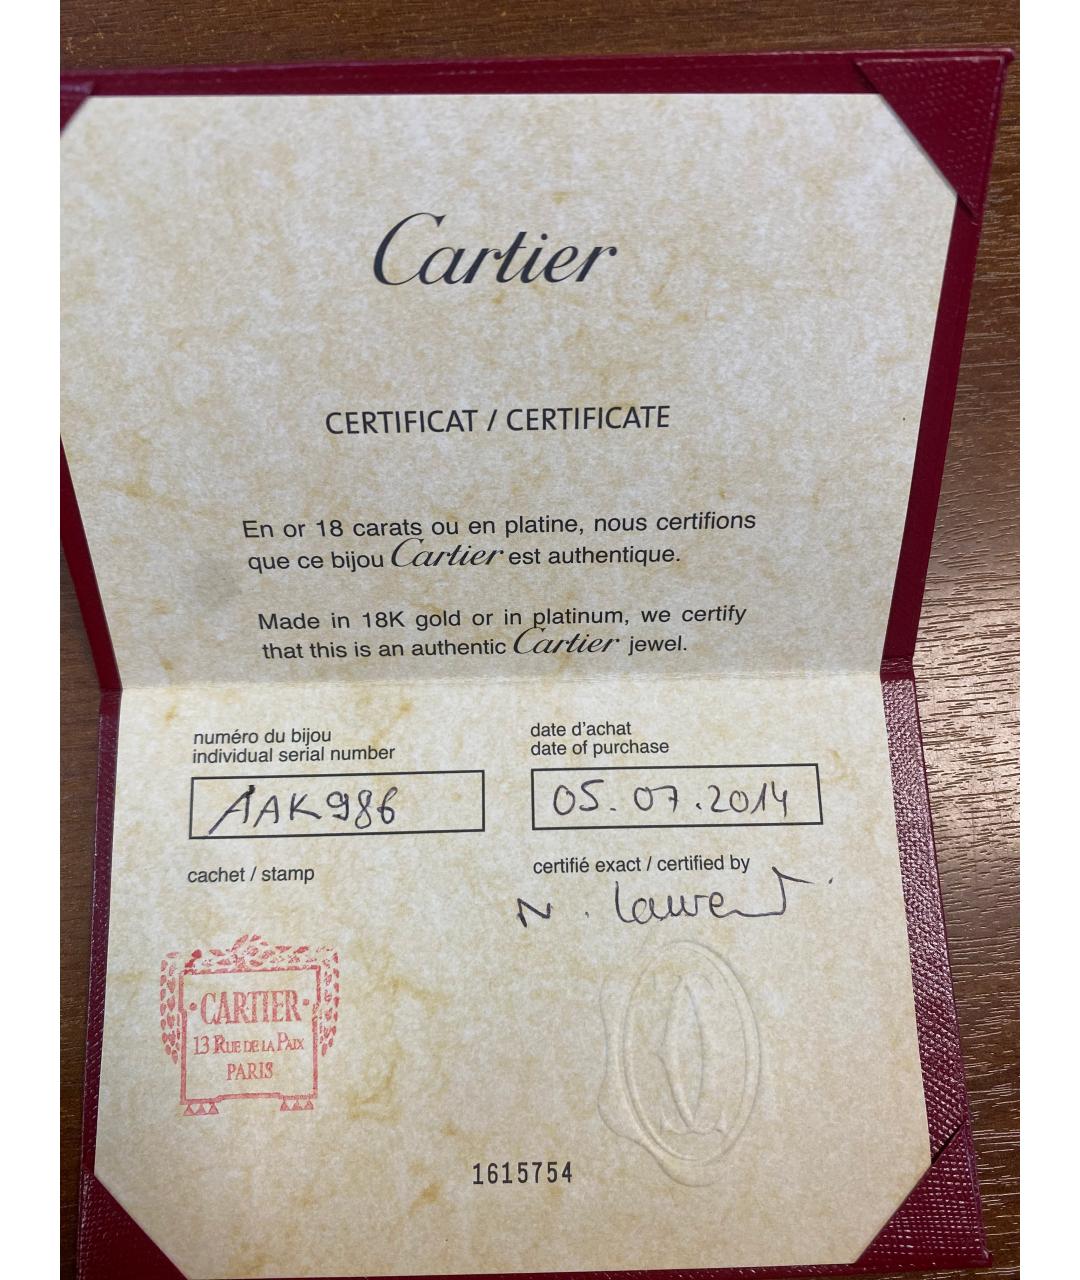 Cartier
CERTIFICAT / CERTIFICATE
En or 18 carats ou en platine, nous certifions
que ce bijou Cartier est authentique.
Made in 18K gold or in platinum, we certify
that this is an authentic Cartier jewel.
numéro du bijou
individual serial number
date d'achat
date of purchase
AAK986
05.07.2014
cachet / stamp
certifié exact / certified by
N. Laurent
CARTIER
13 RUE DE LA PAIX
PARIS
1615754